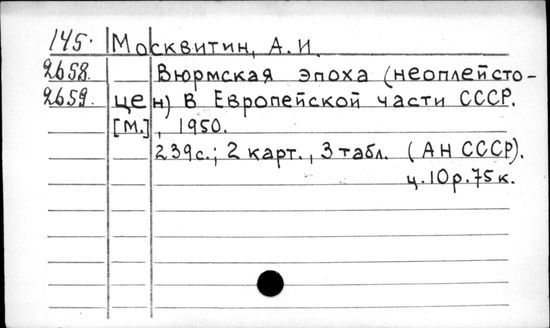 145. Москвитин, А. И.
2658. Вюрмская эпоха (неоплейсто-
2659. цен) в Европейской части СССР.
[м.], 1950.
239с.; 2 карт., 3 табл. (АН СССР).
ц.10р.75к.